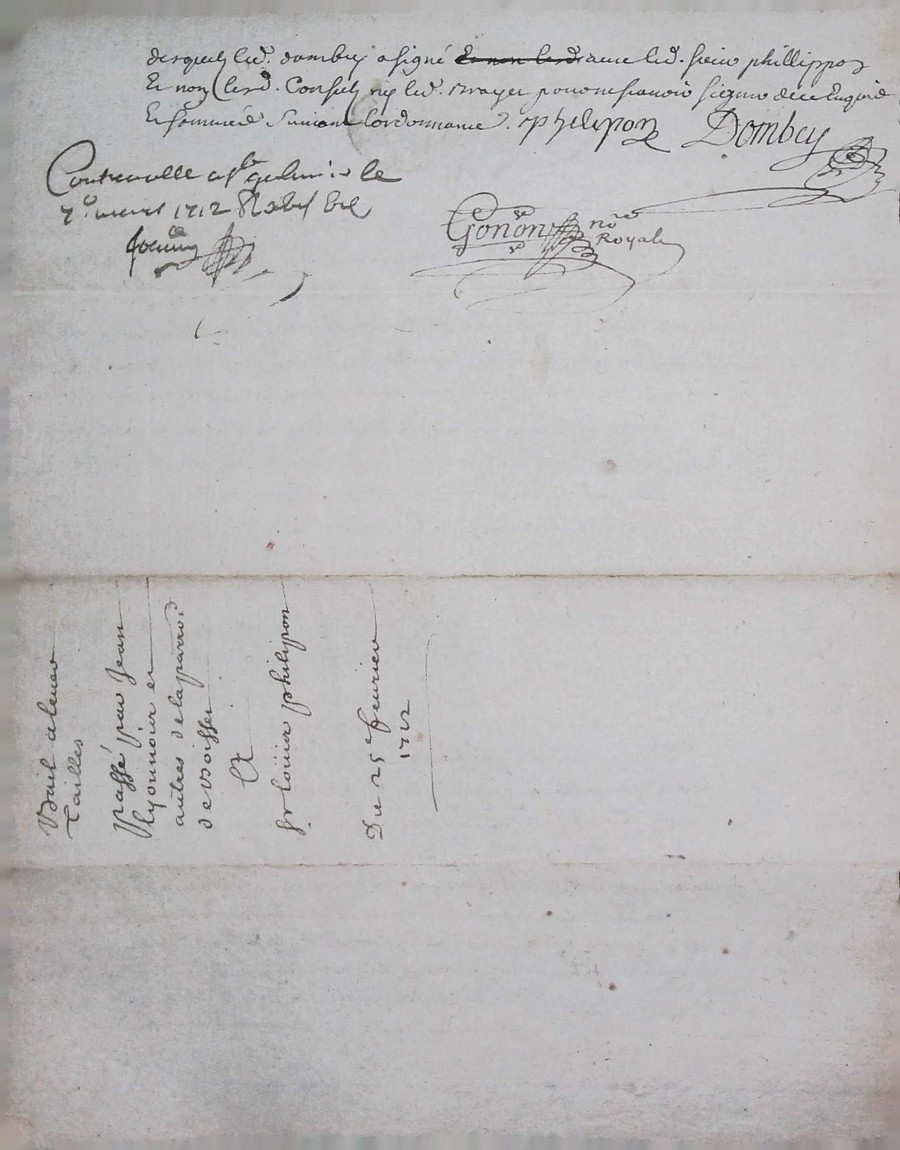 desquels led. dombey a signé avec led. sieur phillippon
Et non lesd. Consuls ny led. pour ne scavoir signer de ce Enquis
Et sommés suivant Lordonnance. philipon Dombey
Controllé a le
7e mars 1712 Recu
Gonon nore
Royal
Bail a lever
Tailles
Passé par Jean
lyonnour et
autres de la parroi
de
Et
sr loüis philipon
Du 25e feurier
1712